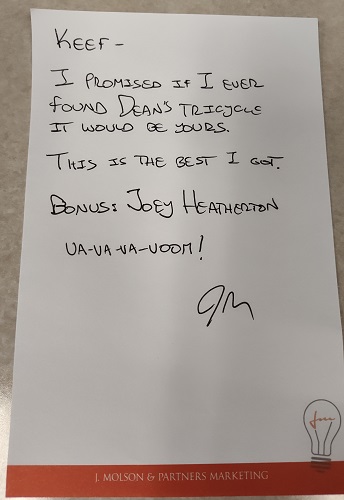 KEEF -
I PROMISED IF I EVER
FOUND DEAN'S TRICYCLE
IT WOULD BE YOURS.
THIS IS THE BEST I GOT.
BONUS: JOEY HEATHERTON
VA-VA-VA-VOOM!
JM
J. MOLSON & PARTNERS MARKETING